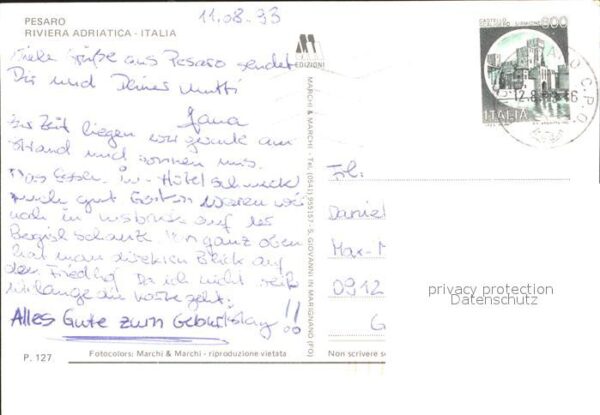 PESARO
RIVIERA ADRIATICA - ITALIA
11.08.93
EDIZIONI
Viele Grüße aus Pesaro sendet
Dir und Deiner Mutti
Jana
Zur Zeit liegen wir gerade am
Strand und sonnen uns.
Das Essen im Hotel schmeckt
auch gut. Gestern waren wir
noch in Insbruck auf der
Bergisl schanze. Von ganz oben
hat man direkten Blick auf
den Friedhof. Da ich nicht weiß
wie lange die Karte geht:
Alles Gute zum Geburtstag!!
P. 127
Fotocolors: Marchi & Marchi - riproduzione vietata
MARCHI & MARCHI - Tel. (0541) 955157 - S. GIOVANNI IN MARIGNANO (FO)
CASTELLO
600
ITALIA
Frl.
Daniel
Max-
0912
G
privacy protection
Datenschutz
Non scrivere s